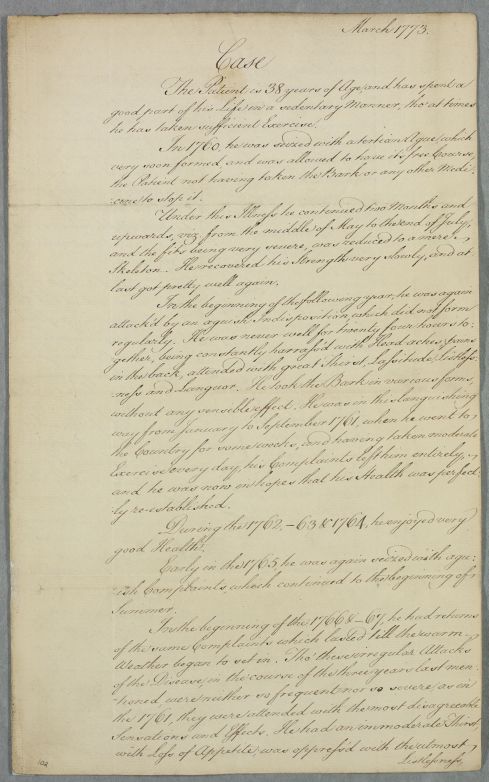 March 1773.
Case
The Patient is 38 years of Age, and has spent a
good part of his Life in a sedentary Manner, tho' at times
he has taken sufficient Exercise.
In 1760, he was seized with a tertian Ague, which
very soon formed, and was allowed to have its free Course,
the Patient not having taken the Bark or any other Medi-
-cine to stop it.
Under this Illness he continued two Months and
upwards, viz. from the middle of May to the end of July,
and the fits being very severe, was reduced to a mere
Skeleton. He recovered his Strength very slowly, and at
last got pretty well again.
In the beginning of the following year, he was again
attack'd by an aguish Indisposition which did not form
regularly. He was never well for twenty four hours to-
gether, being constantly harrass'd with Head aches, pains
in the back, attended with great Thirst, Lassitude, Listless-
-ness and Languor. He took the Bark in various forms,
without any sensible effect. He was in this languishing
way from January to September 1761, when he went to
the Country for some weeks, and having taken moderate
Exercise every day, his Complaints left him entirely,
and he was now in hopes that his Health was perfect-
ly re-established.
During the 1762, -63 & 1764, he enjoyed very
good Health.
Early in the 1765, he was again seized with agu-
-ish Complaints, which continued to the beginning of
Summer.
In the beginning of the 1766 & -67, he had returns
of the same Complaints which lasted till the warm
Weather began to set in. Tho' these irregular Attacks
of the Disease, in the course of the three years last men-
-tioned, were neither so frequent nor so severe, as in
the 1761, they were attended with the most disagreeable
Sensations and Effects. He had an immoderate Thirst,
with Loss of Appetite, was oppress'd with the utmost
Listlessness,